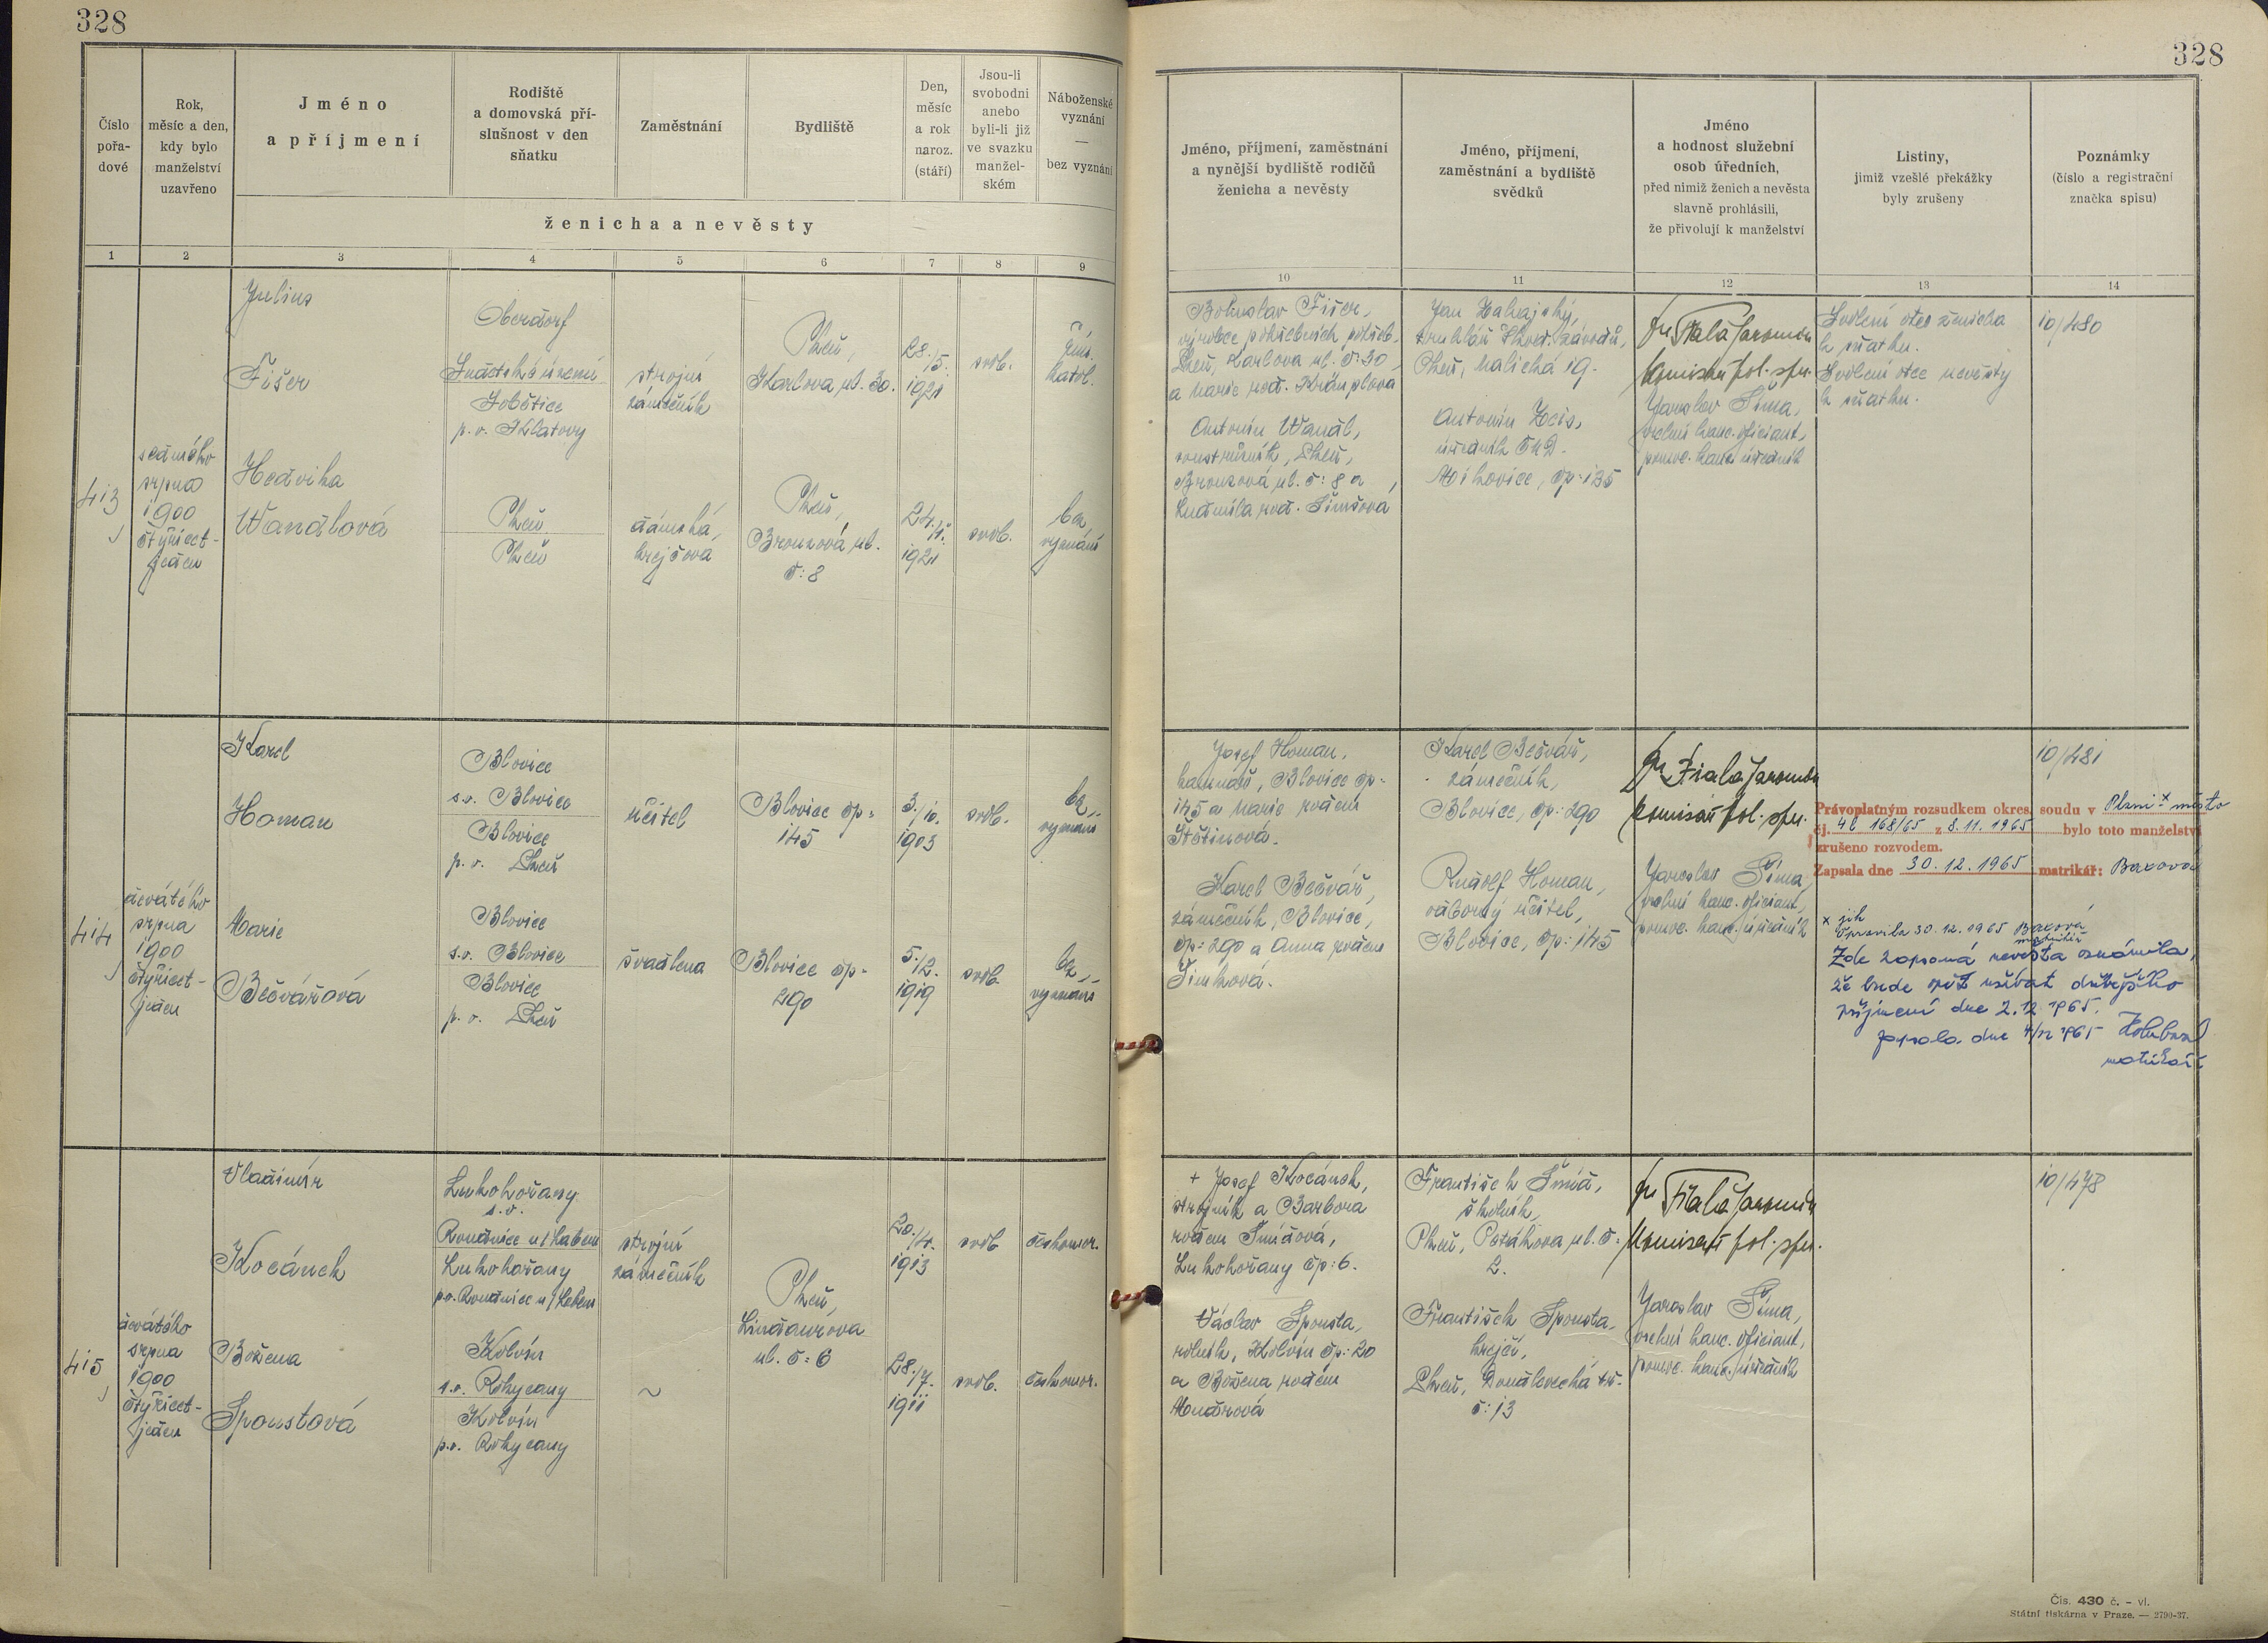 328
328
Číslo
pořa-
dové
Rok,
měsíc a den,
kdy bylo
manželství
uzavřeno
Jméno
a příjmení
Rodiště
a domovská pří-
slušnost v den
sňatku
Zaměstnání
Bydliště
Den,
měsíc
a rok
naroz.
(stáří)
Jsou-li
svobodni
anebo
byli-li již
ve svazku
manžel-
ském
Náboženské
vyznání
—
bez vyznání
ženicha a nevěsty
1 2 3 4 5 6 7 8 9
Jméno, příjmení, zaměstnání
a nynější bydliště rodičů
ženicha a nevěsty
Jméno, příjmení,
zaměstnání a bydliště
svědků
Jméno
a hodnost služební
osob úředních,
před nimiž ženich a nevěsta
slavně prohlásili,
že přivolují k manželství
Listiny,
jimiž vzešlé překážky
byly zrušeny
Poznámky
(číslo a registrační
značka spisu)
10 11 12 13 14
413
sedmého
srpna
1900
čtyřicet-
jeden
Julius
Fišer
Oberdorf
p. o. Klatovy
strojní
zámečník
Plzeň,
Karlova ul. 30.
28./5.
1921
svob.
řím.
katol.
Hedvika
Wandlová
Plzeň
Plzeň
dámská
krejčová
Plzeň,
Bronzová ul.
č: 8
1921
svob.
bez
vyznání
Bohuslav Fišer,
Plzeň, Karlova ul. č: 30
a Marie roz.
Antonín Wandl,
soustružník, Plzeň,
Bronzová ul. č: 8 a
Ludmila roz. Šimšová
Jan Zahajský,
truhlář Škod. závodů,
Plzeň, Malická 19.
Antonín
úředník ČMD.
čp: 135
Fiala Jaromír
komisař pol. spr.
Jaroslav Šíma,
vrchní kanc. oficiant,
pomoc. kanc. úředník
Svolení otce ženicha
k sňatku.
Svolení otce nevěsty
k sňatku.
10/480
414
devátého
srpna
1900
čtyřicet-
jeden
Karel
Homan
Blovice
s. o. Blovice
Blovice
p. o. Plzeň
učitel
Blovice čp:
145
3./10.
1903
svob.
bez
vyznání
Marie
Bečvářová
Blovice
s. o. Blovice
Blovice
p. o. Plzeň
švadlena
Blovice čp:
290
5./2.
1919
svob.
bez
vyznání
Josef Homan,
Blovice čp:
145 a Marie rozen
Štětinová.
Karel Bečvář,
zámečník, Blovice,
čp: 290 a Anna rozen
Šimková.
Karel Bečvář,
zámečník,
Blovice, čp: 290
Rudolf Homan,
odborný učitel,
Blovice, čp: 145
Fiala Jaromír
komisař pol. spr.
Jaroslav Šíma,
vrchní kanc. oficiant,
pomoc. kanc. úředník
10/481
Právoplatným rozsudkem okres. soudu v Plzni x město
čj. 4C 168/65 z 8.11.1965 bylo toto manželství
zrušeno rozvodem.
Zapsala dne 30.12.1965 matrikář: Baxová
x jih
Opravila 30.12.1965 Baxová
matrikář
Zde zapsaná nevěsta oznámila,
že bude opět užívat dřívějšího
příjmení dne 2.12.1965.
zapsala dne 4/12 1965
matrikář
415
devátého
srpna
1900
čtyřicet-
jeden
Vladimír
Kocánek
Lukohořany
s. o.
Roudnice n/Labem
Lukohořany
p.o. Roudnice n/Labem
strojní
zámečník
Plzeň,
Lindaurova
ul. č: 6
20./4.
1913
svob
českomor.
Božena
Spoustová
Kolvín
s. o. Rokycany
Kolvín
p. o. Rokycany
~
28./7.
1911
svob.
českomor.
+ Josef Kocánek,
strojník a Barbora
rozen Šmídová,
Lukohořany čp: 6.
Václav Spousta,
rolník, Kolvín čp: 20
a Božena rozen
František Šmíd,
školník,
Plzeň, Paťákova ul. č:
2.
František Spousta
krejčí,
Plzeň, Doudlevecká tř.
č: 13
Fiala Jaromír
komisař pol. spr.
Jaroslav Šíma,
vrchní kanc. oficiant,
pomoc. kanc. úředník
10/478
Čís. 430 č. - vl.
Státní tiskárna v Praze. — 2790-37.